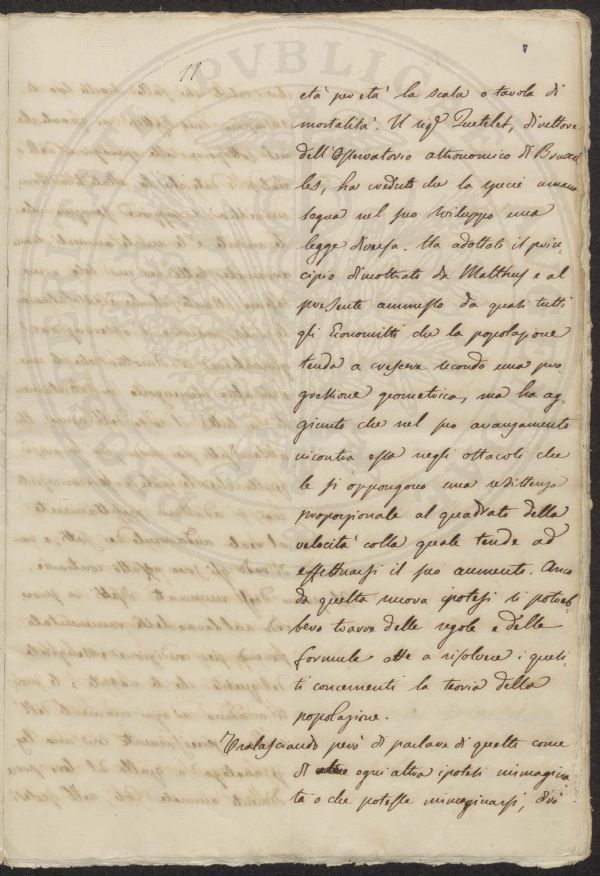 11
età per età la scala o tavola di
mortalità. Il sig.r Quetelet, direttore
dell'Osservatorio astronomico di Bruxel
les, ha creduto che la specie umana
segua nel suo sviluppo una
legge diversa. Ha adottato il prin-
cipio dimostrato da Malthus e al
presente ammesso da quasi tutti
gli Economisti che la popolazione
tenda a crescere secondo una pro
gressione geometrica, ma ha ag-
giunto che nel suo avanzamento
incontra essa negli ostacoli che
le si oppongono una resistenza
proporzionale al quadrato della
velocità colla quale tende ad
effettuarsi il suo aumento. Anco
da questa nuova ipotesi si potreb-
bero trarre delle regole e delle
formule atte a risolvere i quesi-
ti concernenti la teoria della
popolazione.
Tralasciando però di parlare di queste come
di ogni altra ipotesi immagina
ta o che potesse immaginarsi, dirò
PVBLIC